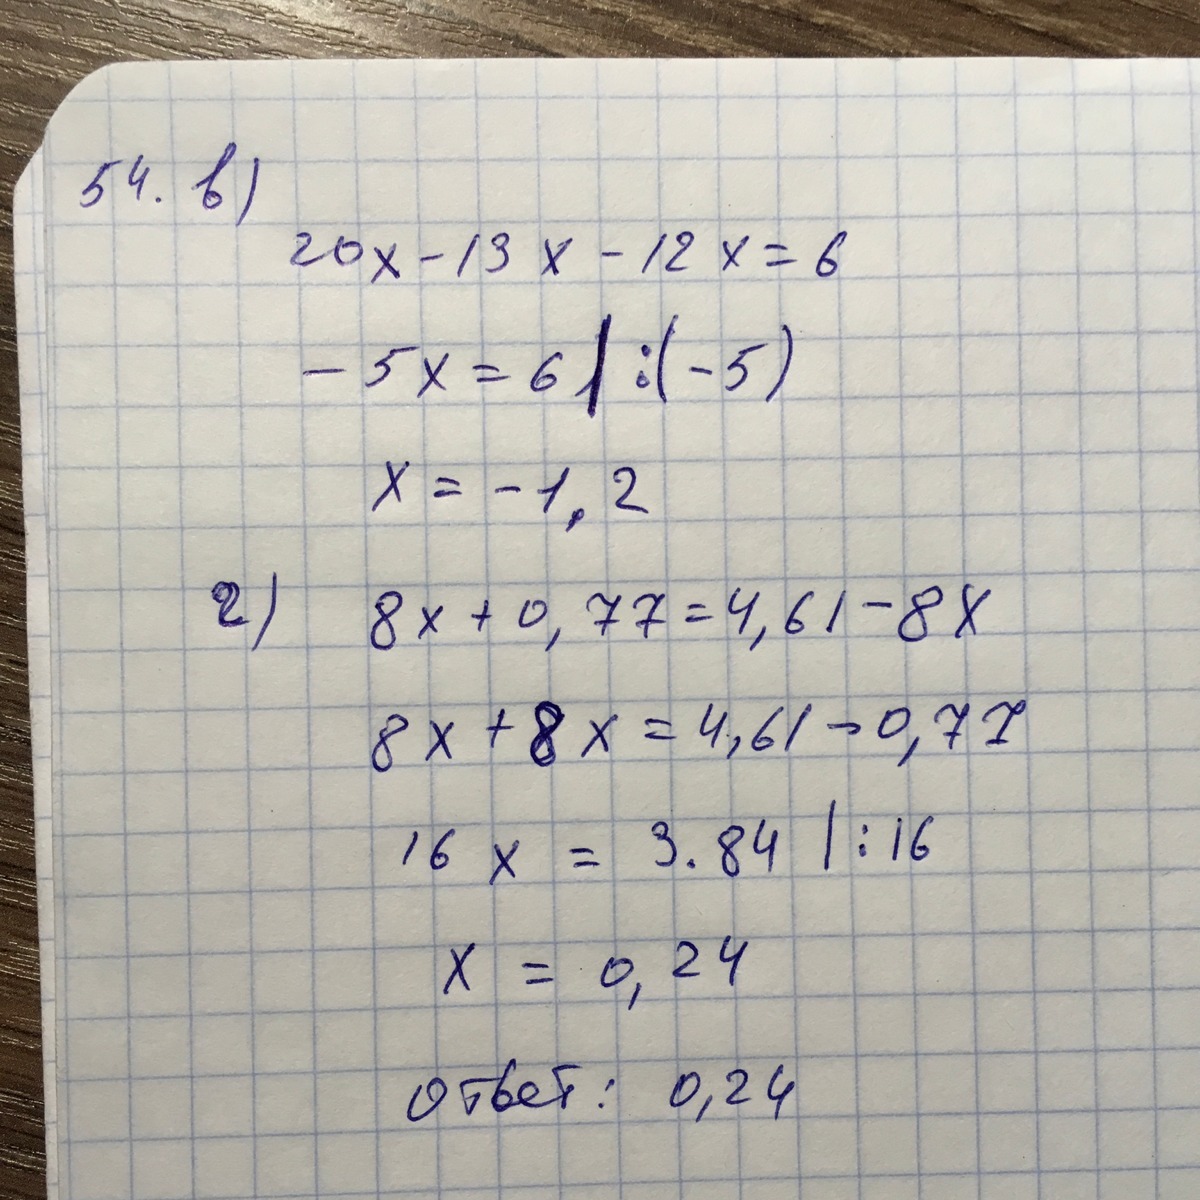 54. в)
20x - 13x - 12x = 6
- 5x = 6 | : (-5)
x = -1,2
г) 8x + 0,77 = 4,61 - 8x
8x + 8x = 4,61 - 0,77
16x = 3.84 | : 16
x = 0,24
Ответ: 0,24